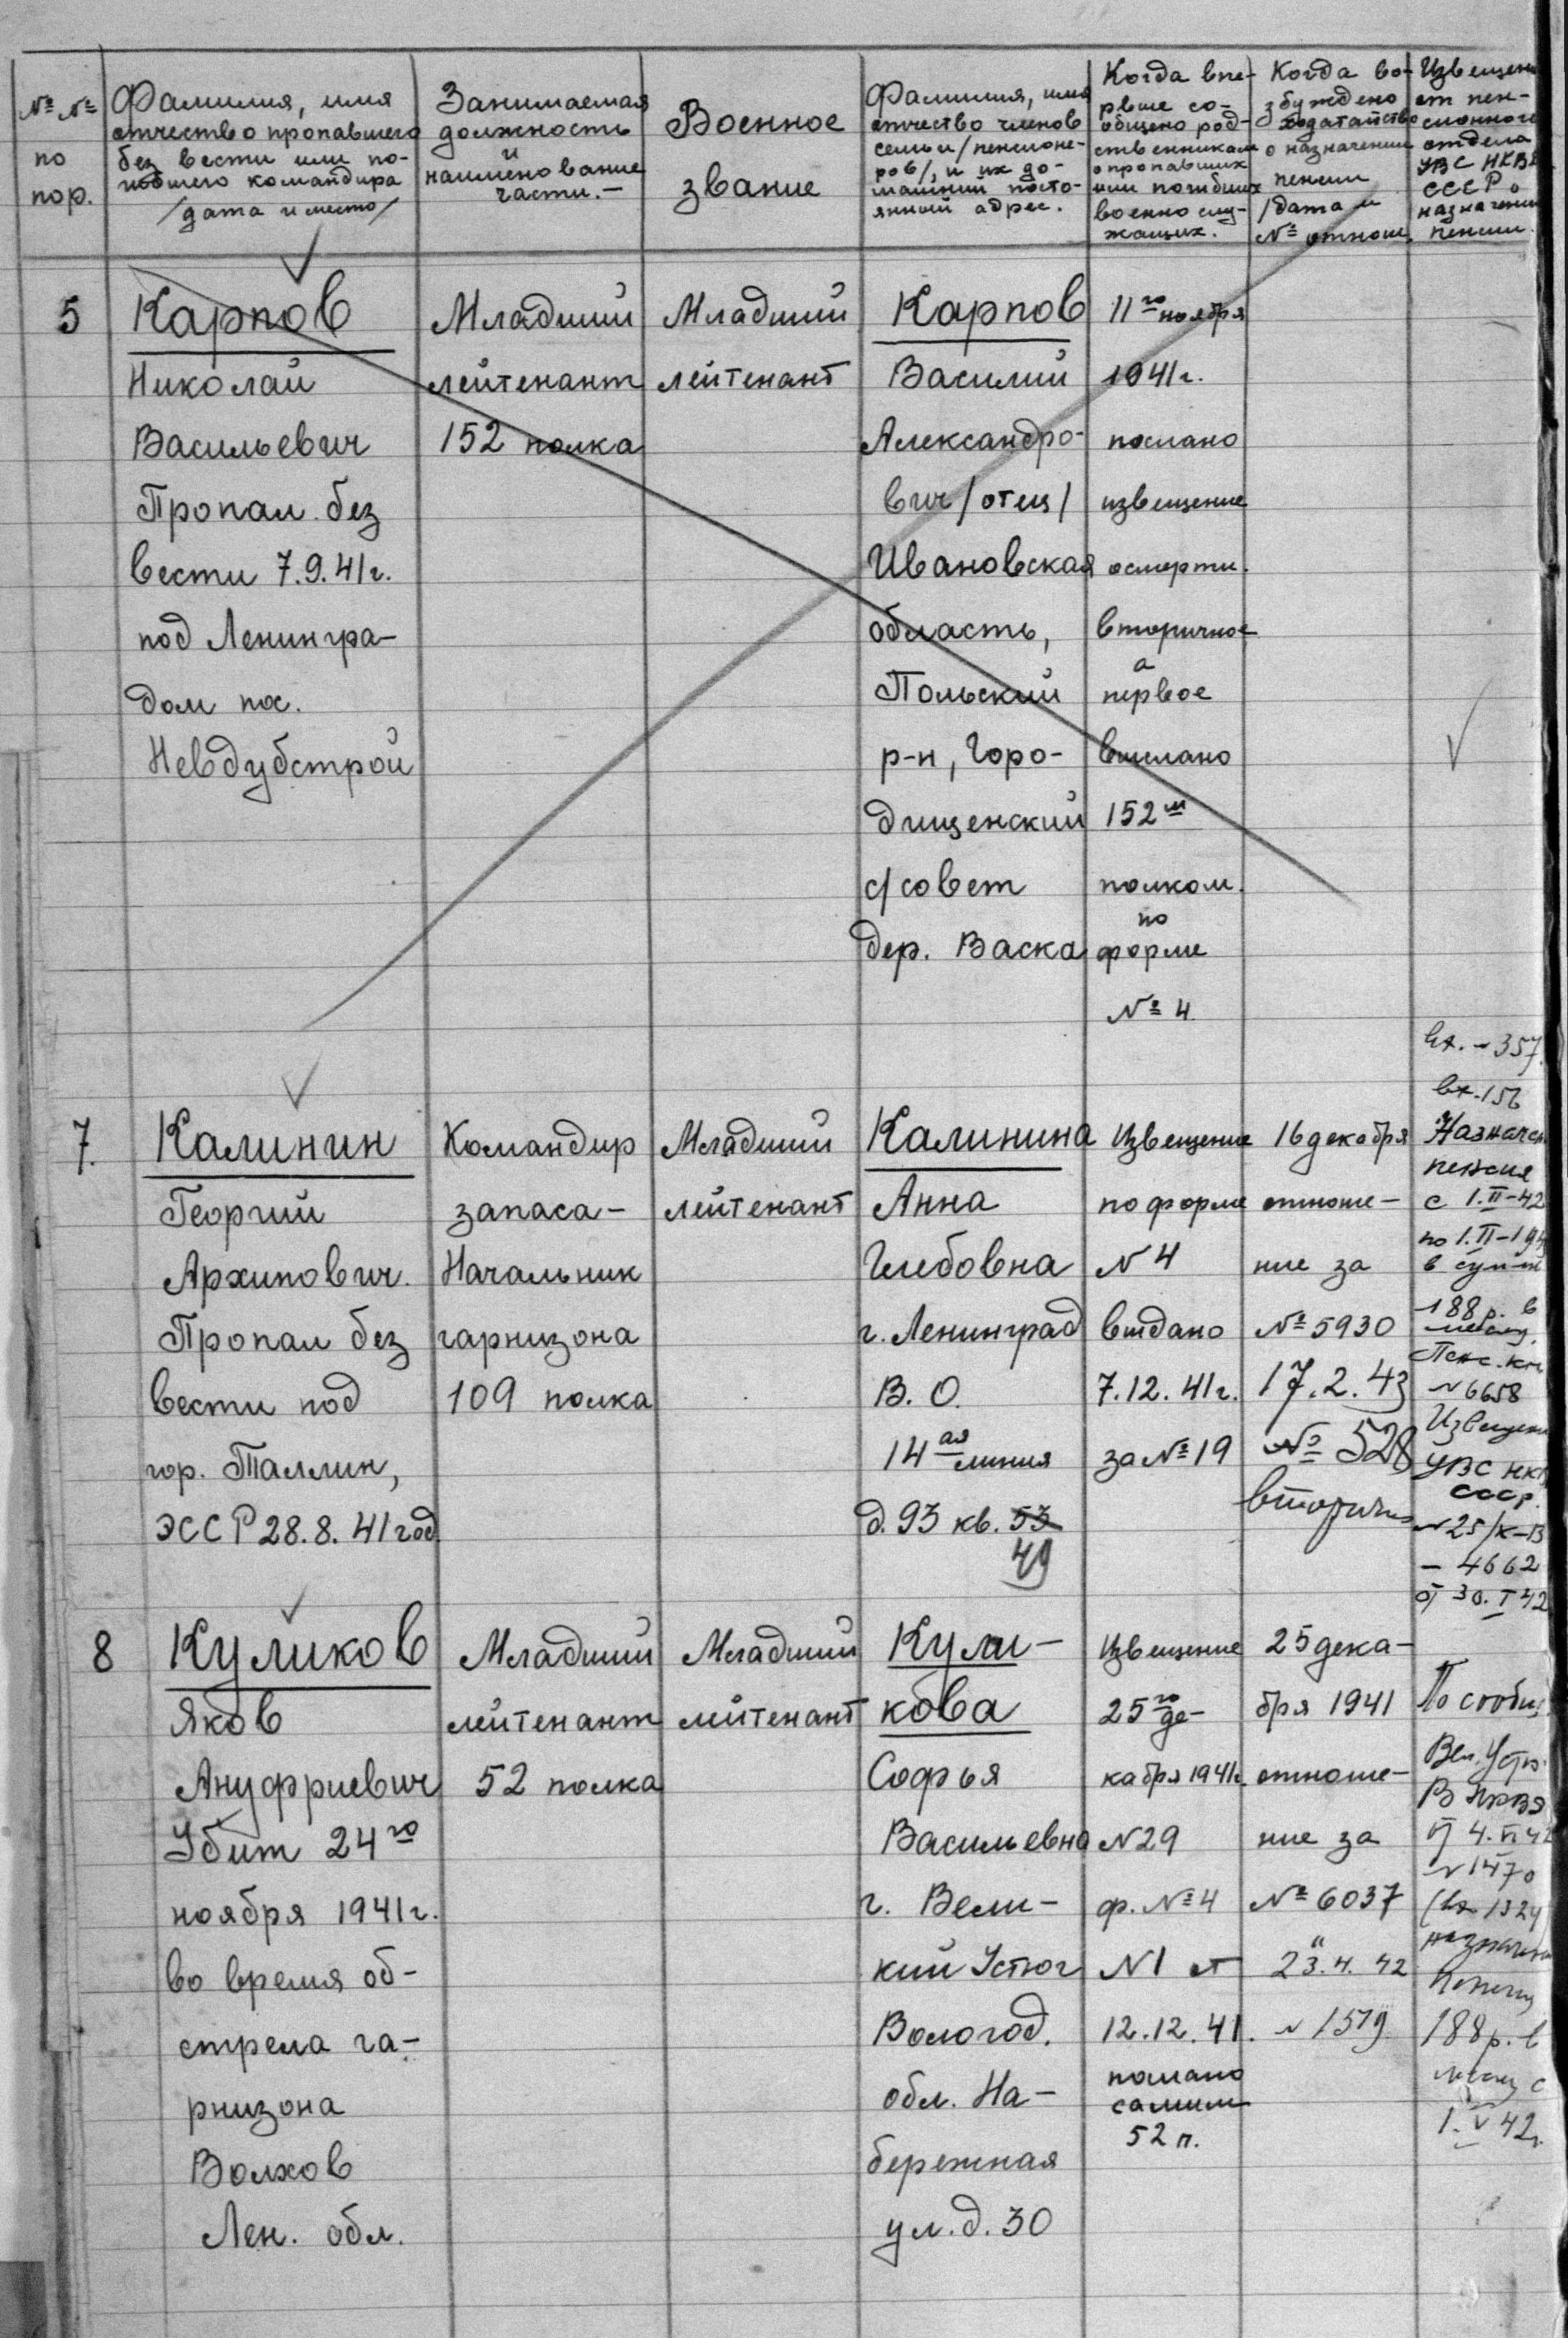 № №
по
пор.
Фамилия, имя
отчество пропавшего
без вести или по-
гибшего командира
/дата и место/
Занимаемая
должность
и
наименование
части.—
Военное
звание
Фамилия, имя
отчество членов
семьи/пенсионе-
ров/, и их до-
машний посто-
янный адрес.
Когда впе-
рвые со-
общено род-
ственникам
о пропавших
или погибших
военнослу-
жащих.
Когда во-
збуждено
ходатайство
о назначении
пенсии
/дата и
№ отнош.
Извещен
от пен-
сионного
отдела
УВС НКВД
СССР о
назначении
пенсии.
5
Карпов
Николай
Васильевич
Пропал без
вести 7.9.41г.
под Ленингра-
дом пос.
Невдубстрой
Младший
лейтенант
152 полка
Младший
лейтенант
Карпов
Василий
Александро-
вич/отец/
Ивановская
область,
Польский
р-н, Горо-
дищенский
с/совет
дер. Васка
11го ноября
1941г.
послано
извещение
о смерти.
вторичное
а
первое
выслано
152м
полком.
по
форме
№ 4
7.
Калинин
Георгий
Архипович.
Пропал без
вести под
гор. Таллин,
ЭССР 28.8.41год
Командир
запаса-
Начальник
гарнизона
109 полка
Младший
лейтенант
Калинина
Анна
Глебовна
г. Ленинград
В. О.
14ая линия
д. 93 кв. 53
49
Извещение
по форме
N 4
выдано
7.12.41г.
за № 19
16 декабря
отноше-
ние за
№ 5930
17.2.43
№ 528
вторично
вх. - 357.
вх. 156
Назначен
пенсия
с 1.II-42
по 1.II-194
в сум-ме
188 р. в
месяц.
Пенс. кн
N 6658
Извещен
УВС НКВ
СССР.
N 25/к-13
- 4662
от 30.I 42
8
Куликов
Яков
Ануфриевич
Убит 24го
ноября 1941г.
во время об-
стрела га-
рнизона
Волхов
Лен. обл.
Младший
лейтенант
52 полка
Младший
лейтенант
Кули-
кова
Софья
Васильевна
г. Вели-
кий Устюг
Вологод.
обл. На-
бережная
ул. д. 30
Извещение
25го де-
кабря 1941г.
N 29
ф. № 4
N 1 от
12.12.41.
послано
самим
52 п.
25 дека-
бря 1941
отноше-
ние за
№ 6037
23.4.42
N 1519
По сообщ
Вел. Устю.
от 4.VI 42
N 1470
(вх 1324
назначена
пенсия
188 р. в
месяц с
1.V 42г.